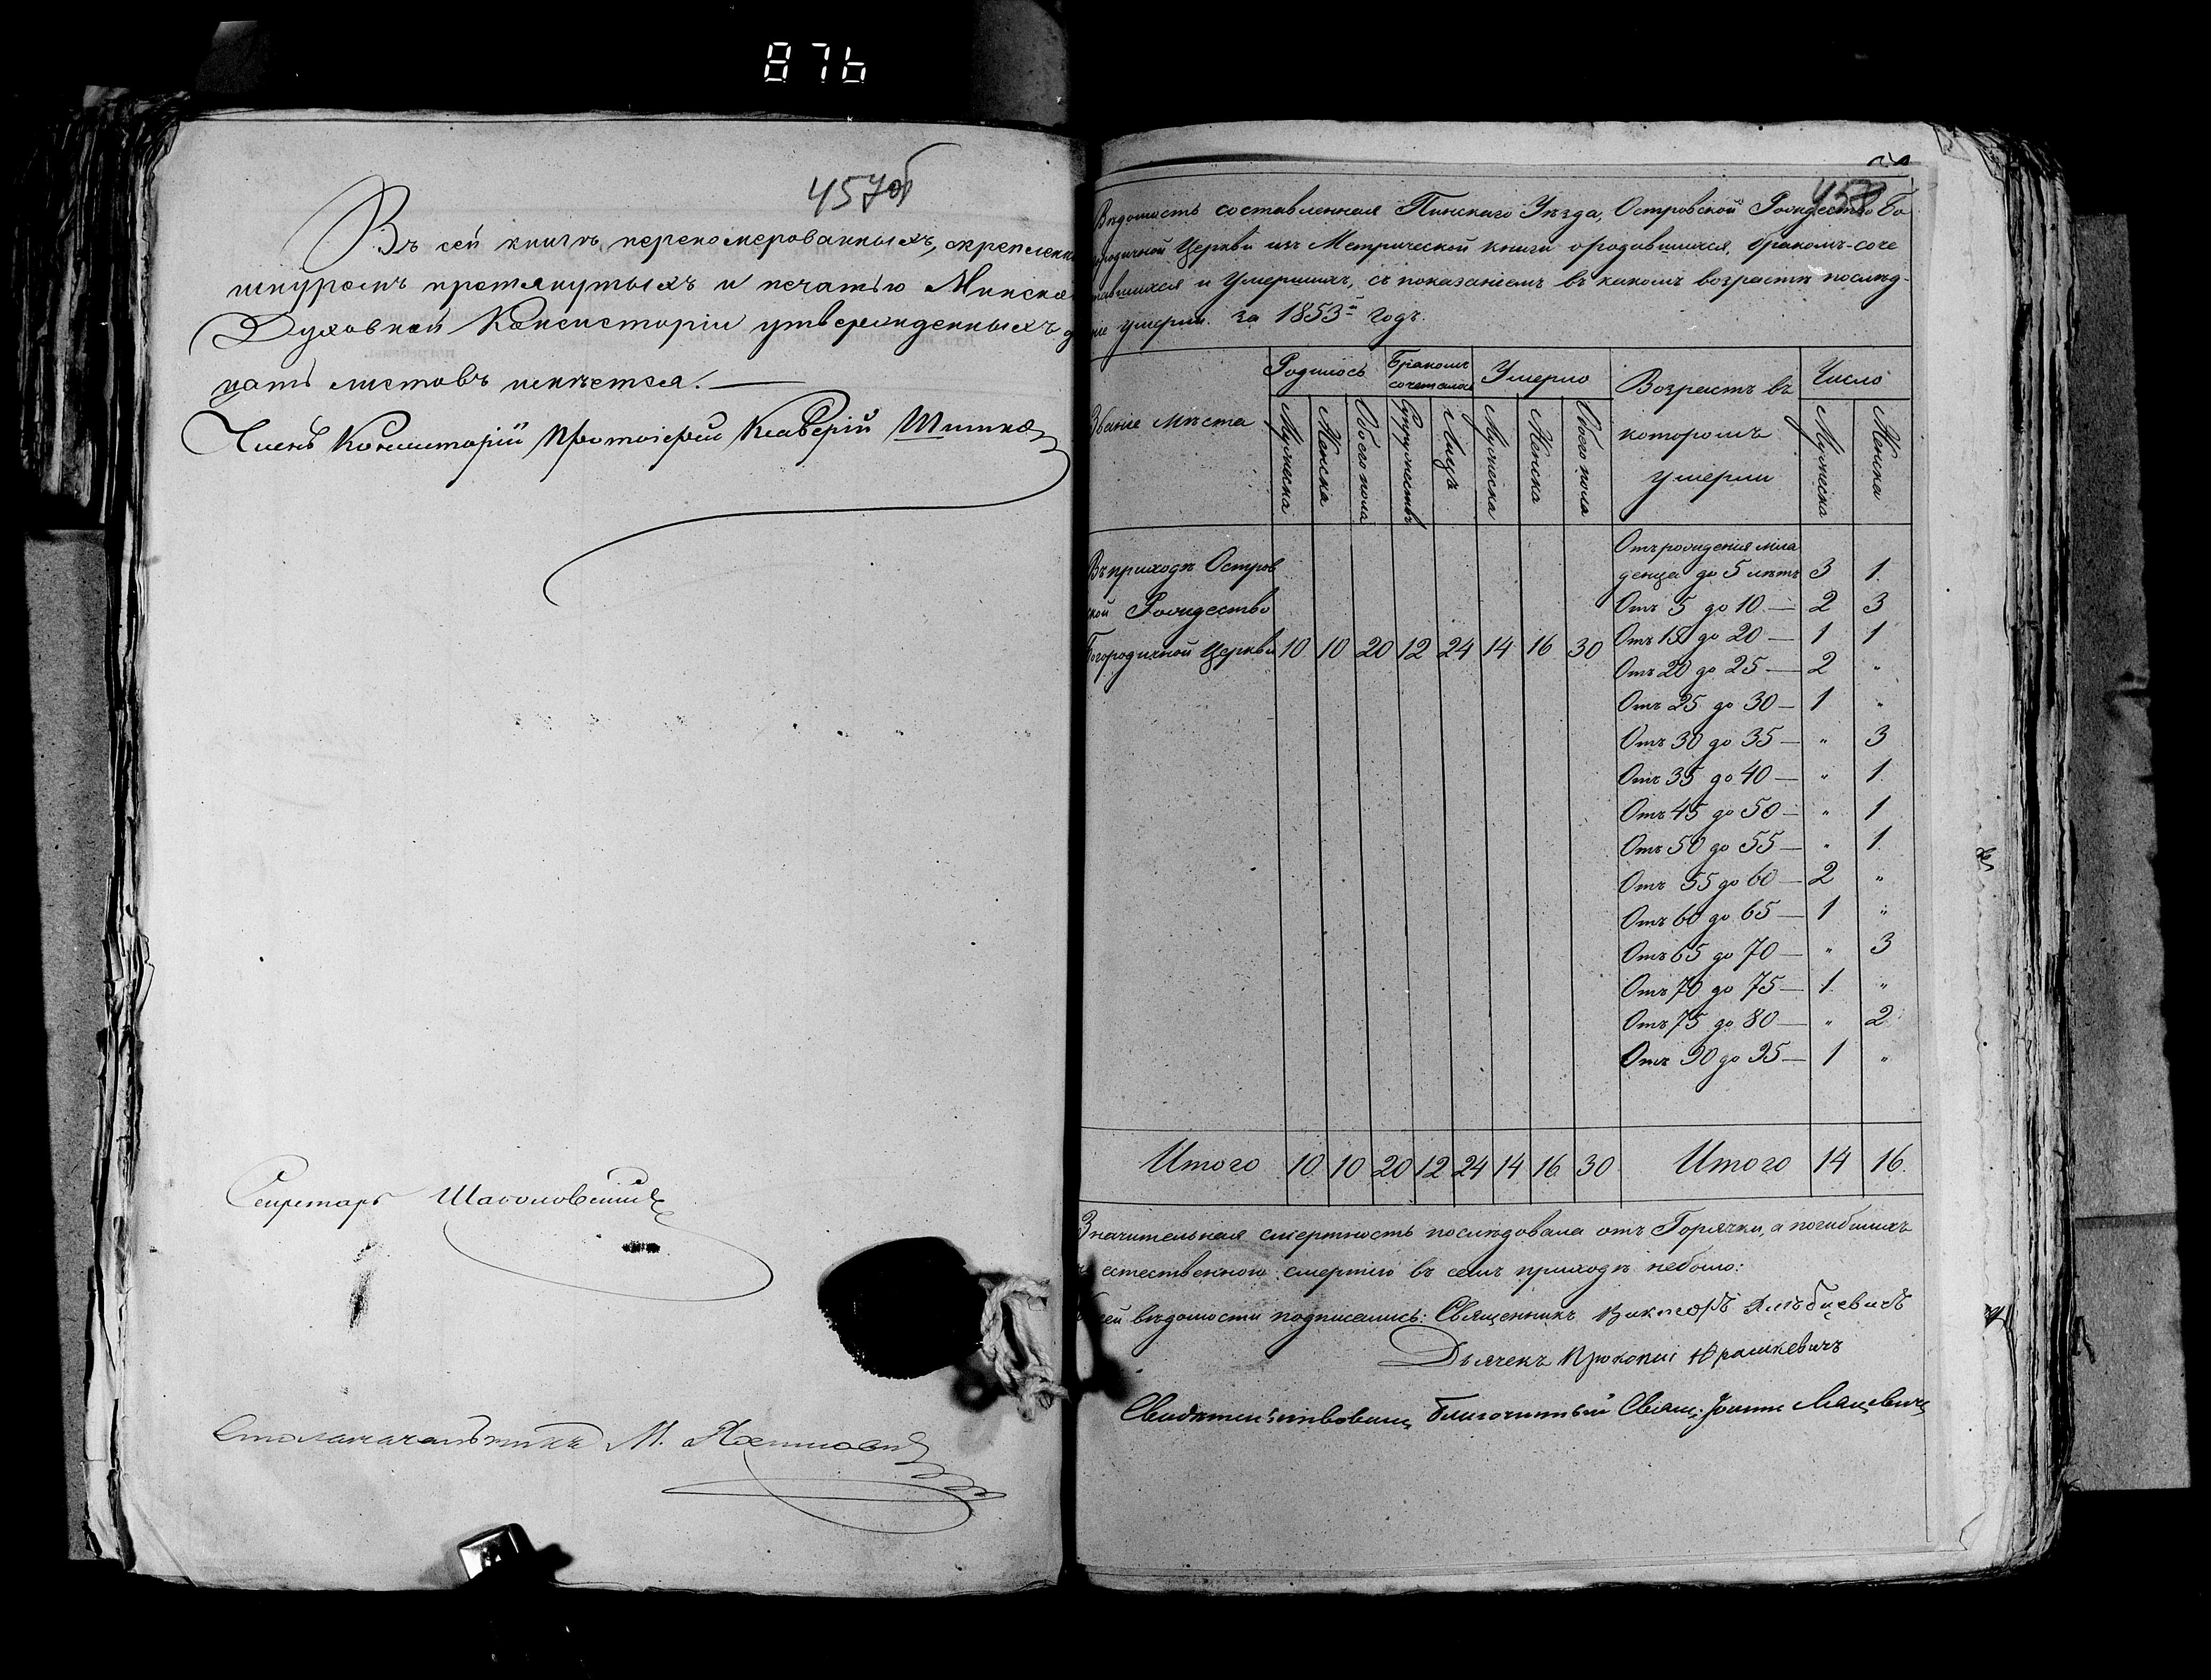 876
457об
Въ сей книгѣ перенумерованныхъ, скрѣпленн
шнуромъ протянутыхъ и печатью Минско
Духовной Консисторіи утвержденныхъ д
цать листовъ имѣется.
Членъ Консисторіи Протоіерей Ксаверій
Секретарь
Столоначальникъ М.
458
Вѣдомость составленная Пинскаго Уѣзда, Островской Рождество Бо
городичной Церкви изъ Метрической книги о родившихся, бракомъ-соче
тавшихся и Умершихъ, съ показаніемъ въ какомъ возрастѣ послѣд-
ніе умерли. за 1853й годъ.
Званіе мѣста Родилось Бракомъ сочеталось Умерло Возрастъ въ которомъ умерли Число
Мужеска Женска Обоего пола Супружествъ Лицъ Мужеска Женска Обоего пола Мужеска Женска
Въ приходѣ Остров
ской Рождество
Богородичной Церкви 10 10 20 12 24 14 16 30
Отъ рожденія мла
денца до 5 лѣтъ 3 1
Отъ 5 до 10 — 2 3
Отъ 15 до 20 — 1 1
Отъ 20 до 25 — 2 "
Отъ 25 до 30 — 1 "
Отъ 30 до 35 — " 3
Отъ 35 до 40 — " 1
Отъ 45 до 50 — " 1
Отъ 50 до 55 — " 1
Отъ 55 до 60 — 2 "
Отъ 60 до 65 — 1 "
Отъ 65 до 70 — " 3
Отъ 70 до 75 — 1 "
Отъ 75 до 80 — " 2
Отъ 90 до 95 — 1 "
Итого 10 10 20 12 24 14 16 30 Итого 14 16
Значительная смертность послѣдовала отъ Горячки, а погибшихъ
естественною смертію въ семъ приходѣ небыло:
сей вѣдомости подписались: Священникъ Викторъ
Дьячекъ Прокопій Юрашкевичъ
Свидѣтельствовалъ Благочинный Свящ: Іоаннъ